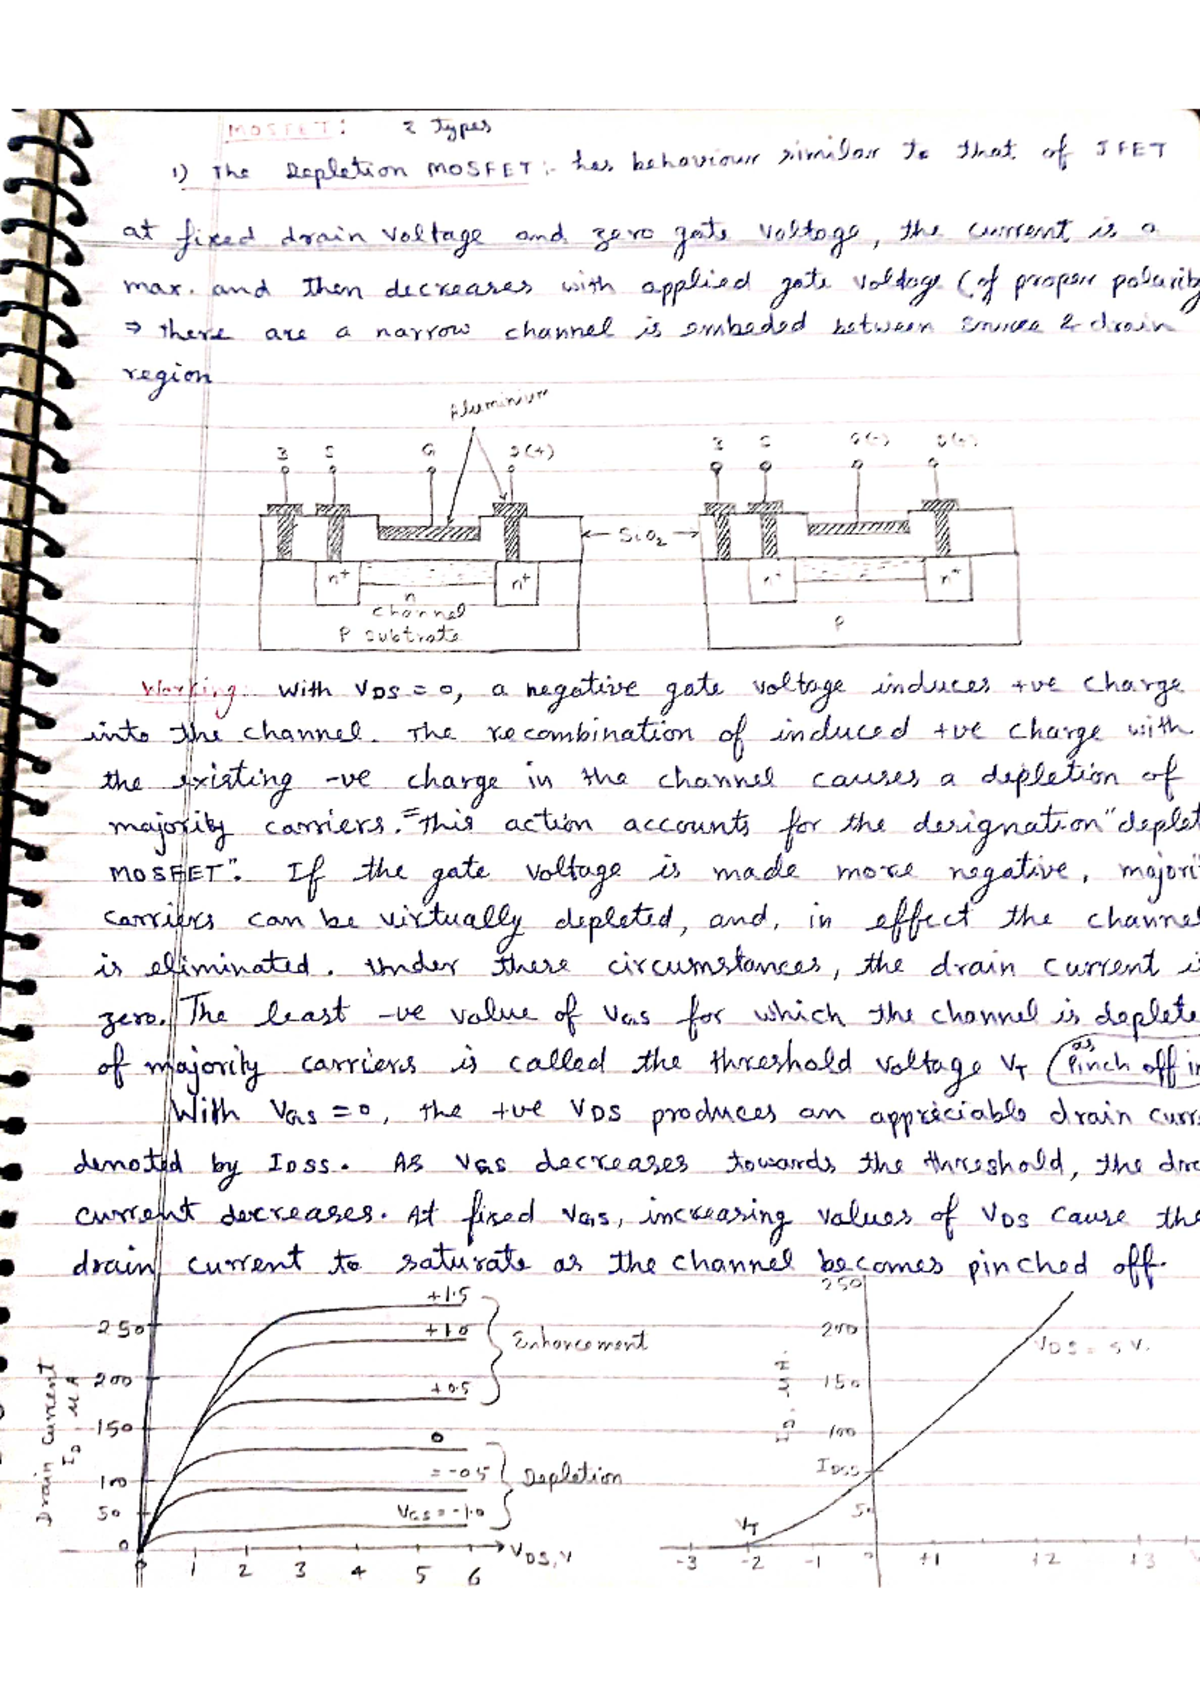 MOSFET: 2 Types
1) The Depletion MOSFET:- has behaviour similar to that of JFET
at fixed drain voltage and zero gate voltage, the current is a
max. and then decreases with applied gate voltage (of proper polarity
⇒ there are a narrow channel is embeded between source & drain
region
Aluminium
B S G D(+)
B S G(-) D(+)
← SiO2 →
n+ n+
n+ n+
n
channel
P substrate
P
Working: With VDS = 0, a negative gate voltage induces +ve charge
into the channel. The recombination of induced +ve charge with
the existing -ve charge in the channel causes a depletion of
majority carriers. This action accounts for the designation "deplet
MOSFET". If the gate voltage is made more negative, majori
carriers can be virtually depleted, and, in effect the channel
is eliminated. Under these circumstances, the drain current is
zero. The least -ve value of VGS for which the channel is deplete
of majority carriers is called the threshold voltage VT (as Pinch off in
With VGS = 0, the +ve VDS produces an appreciable drain curr
denoted by IDSS. As VGS decreases towards the threshold, the dra
current decreases. At fixed VGS, increasing values of VDS cause the
drain current to saturate as the channel becomes pinched off.
+1.5
+1.0
+0.5
Enhancement
0
= -0.5
VGS = -1.0
Depletion
Drain Current
ID μA
250
200
150
100
50
0
0 1 2 3 4 5 6
VDS, V
250
200
150
100
IDSS
50
ID, μA.
VDS = 5 V.
VT
-3 -2 -1 0 +1 +2 +3